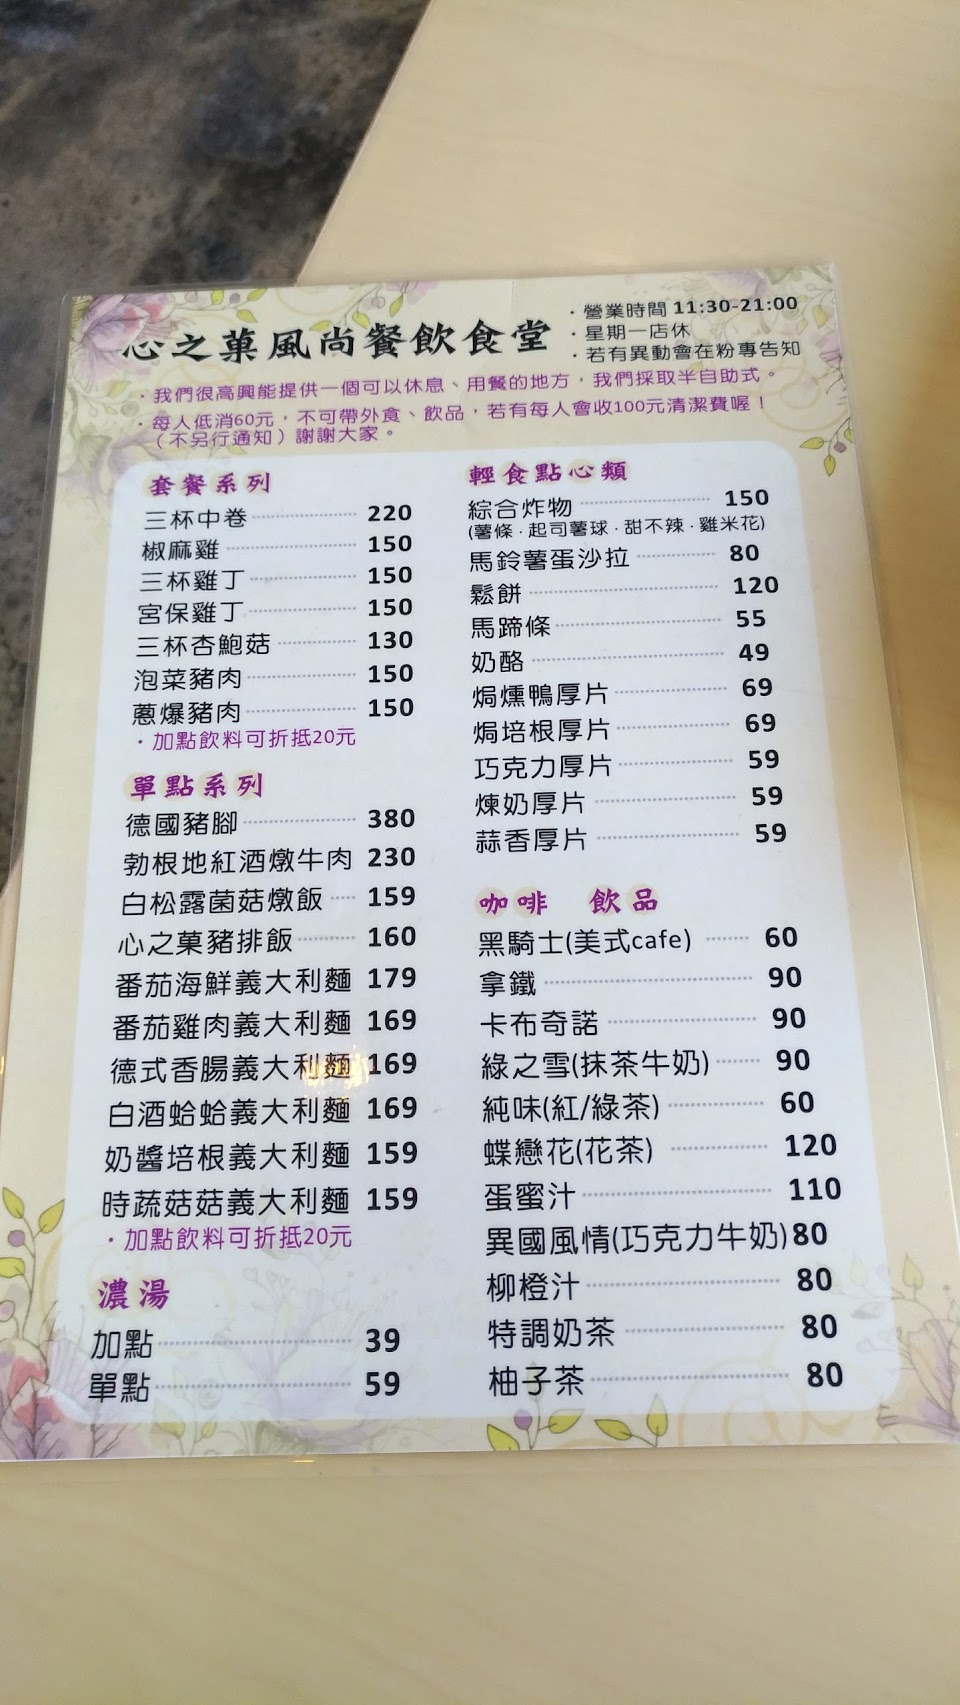 心之菓風尚餐飲食堂
·營業時間 11:30-21:00
·星期一店休
·若有異動會在粉專告知
·我們很高興能提供一個可以休息、用餐的地方，我們採取半自助式。
·每人低消60元，不可帶外食、飲品，若有每人會收100元清潔費喔！
（不另行通知）謝謝大家。
套餐系列
三杯中卷 220
椒麻雞 150
三杯雞丁 150
宮保雞丁 150
三杯杏鮑菇 130
泡菜豬肉 150
蔥爆豬肉 150
·加點飲料可折抵20元
單點系列
德國豬腳 380
勃根地紅酒燉牛肉 230
白松露菌菇燉飯 159
心之菓豬排飯 160
番茄海鮮義大利麵 179
番茄雞肉義大利麵 169
德式香腸義大利麵 169
白酒蛤蛤義大利麵 169
奶醬培根義大利麵 159
時蔬菇菇義大利麵 159
·加點飲料可折抵20元
濃湯
加點 39
單點 59
輕食點心類
綜合炸物 150
(薯條·起司薯球·甜不辣·雞米花)
馬鈴薯蛋沙拉 80
鬆餅 120
馬蹄條 55
奶酪 49
焗燻鴨厚片 69
焗培根厚片 69
巧克力厚片 59
煉奶厚片 59
蒜香厚片 59
咖啡 飲品
黑騎士(美式cafe) 60
拿鐵 90
卡布奇諾 90
綠之雪(抹茶牛奶) 90
純味(紅/綠茶) 60
蝶戀花(花茶) 120
蛋蜜汁 110
異國風情(巧克力牛奶) 80
柳橙汁 80
特調奶茶 80
柚子茶 80